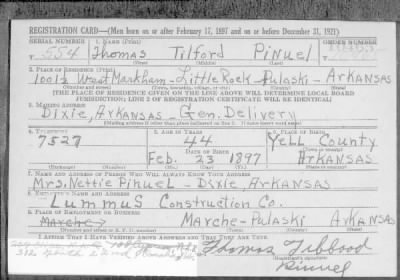 REGISTRATION CARD—(Men born on or after February 17, 1897 and on or before December 31, 1921)
SERIAL NUMBER 1. NAME (Print) ORDER NUMBER
T 554 Thomas Tilford Pinuel
(First) (Middle) (Last)
2. PLACE OF RESIDENCE (Print)
1001½ West Markham - Little Rock - Pulaski - ARKANSAS
(Number and street) (Town, township, village, or city) (County) (State)
[THE PLACE OF RESIDENCE GIVEN ON THE LINE ABOVE WILL DETERMINE LOCAL BOARD
JURISDICTION; LINE 2 OF REGISTRATION CERTIFICATE WILL BE IDENTICAL]
3. MAILING ADDRESS
Dixie, ARKANSAS Gen. Delivery
[Mailing address if other than place indicated on line 2. If same insert word same]
4. TELEPHONE 5. AGE IN YEARS 6. PLACE OF BIRTH
7527 44 Yell County
DATE OF BIRTH
Feb. 23 1897 ARKANSAS
(Exchange) (Number) (Mo.) (Day) (Yr.) (State or country)
7. NAME AND ADDRESS OF PERSON WHO WILL ALWAYS KNOW YOUR ADDRESS
Mrs. Nettie Pinuel - Dixie, ARKANSAS
8. EMPLOYER'S NAME AND ADDRESS
Lummus Construction Co.
9. PLACE OF EMPLOYMENT OR BUSINESS
Marche Marche - Pulaski ARKANSAS
(Number and street or R. F. D. number) (Town) (County) (State)
I AFFIRM THAT I HAVE VERIFIED ABOVE ANSWERS AND THAT THEY ARE TRUE.
Thomas
Pinuel